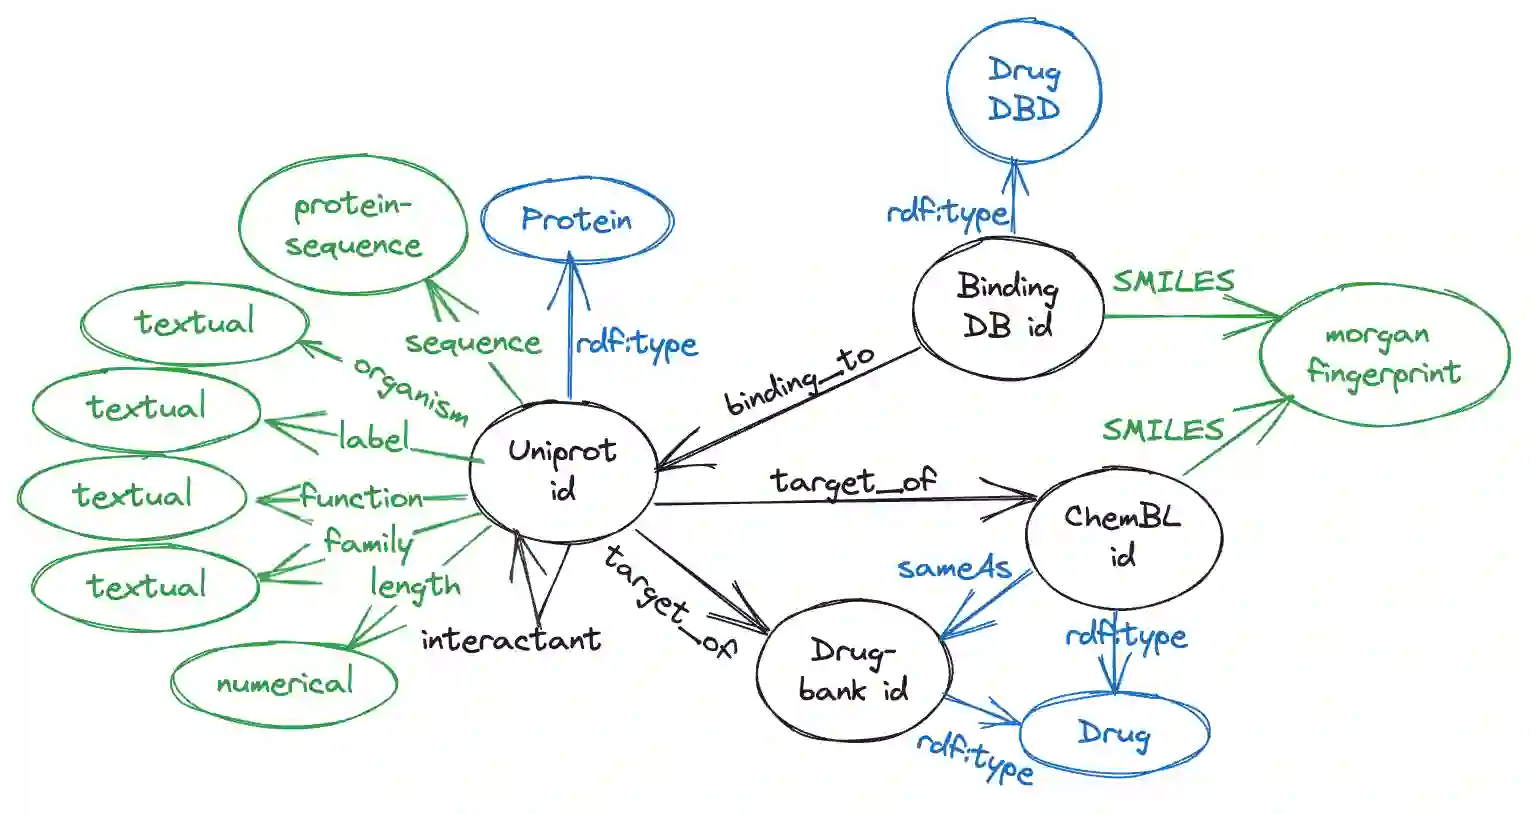 Drug
DBD
rdf:type
protein-
sequence
Protein
Binding
DB id
SMILES
textual
sequence
rdf:type
morgan
fingerprint
organism
binding_to
textual
label
Uniprot
id
SMILES
target_of
textual
function
ChemBL
id
family
textual
length
sameAs
target_of
interactant
rdf:type
Drug-
bank id
numerical
Drug
rdf:type